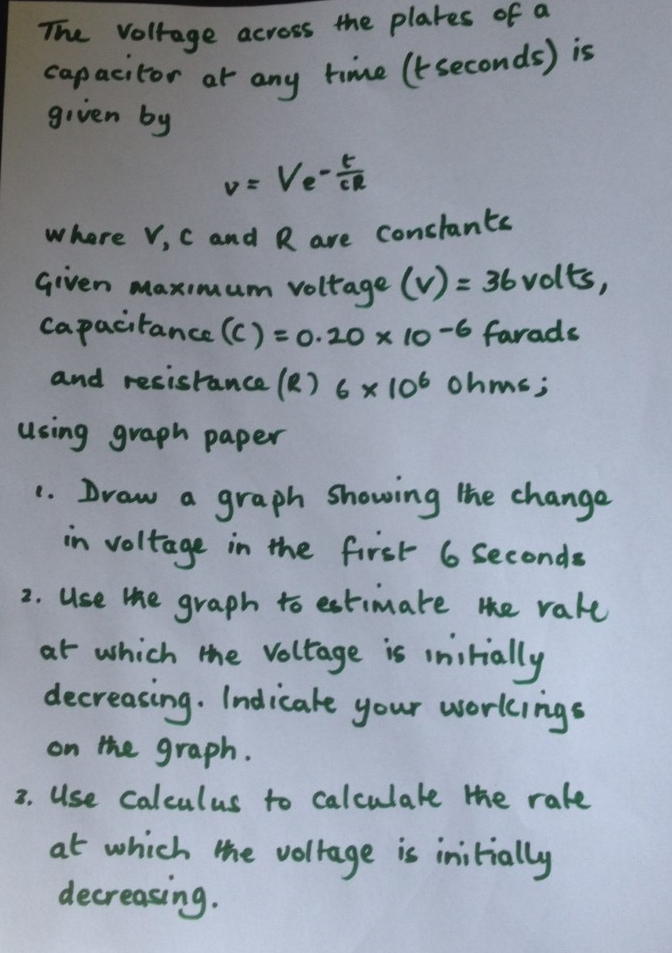 The Voltage across the plates of a
capacitor at any time (t seconds) is
given by
v = Ve^-t/CR
where V, C and R are constants
Given Maximum Voltage (V) = 36 volts,
Capacitance (C) = 0.20 x 10 -6 farads
and resistance (R) 6 x 10⁶ ohms;
Using graph paper
1. Draw a graph showing the change
in voltage in the first 6 Seconds
2. Use the graph to estimate the rate
at which the Voltage is initially
decreasing. Indicate your workings
on the graph.
3. Use Calculus to calculate the rate
at which the voltage is initially
decreasing.